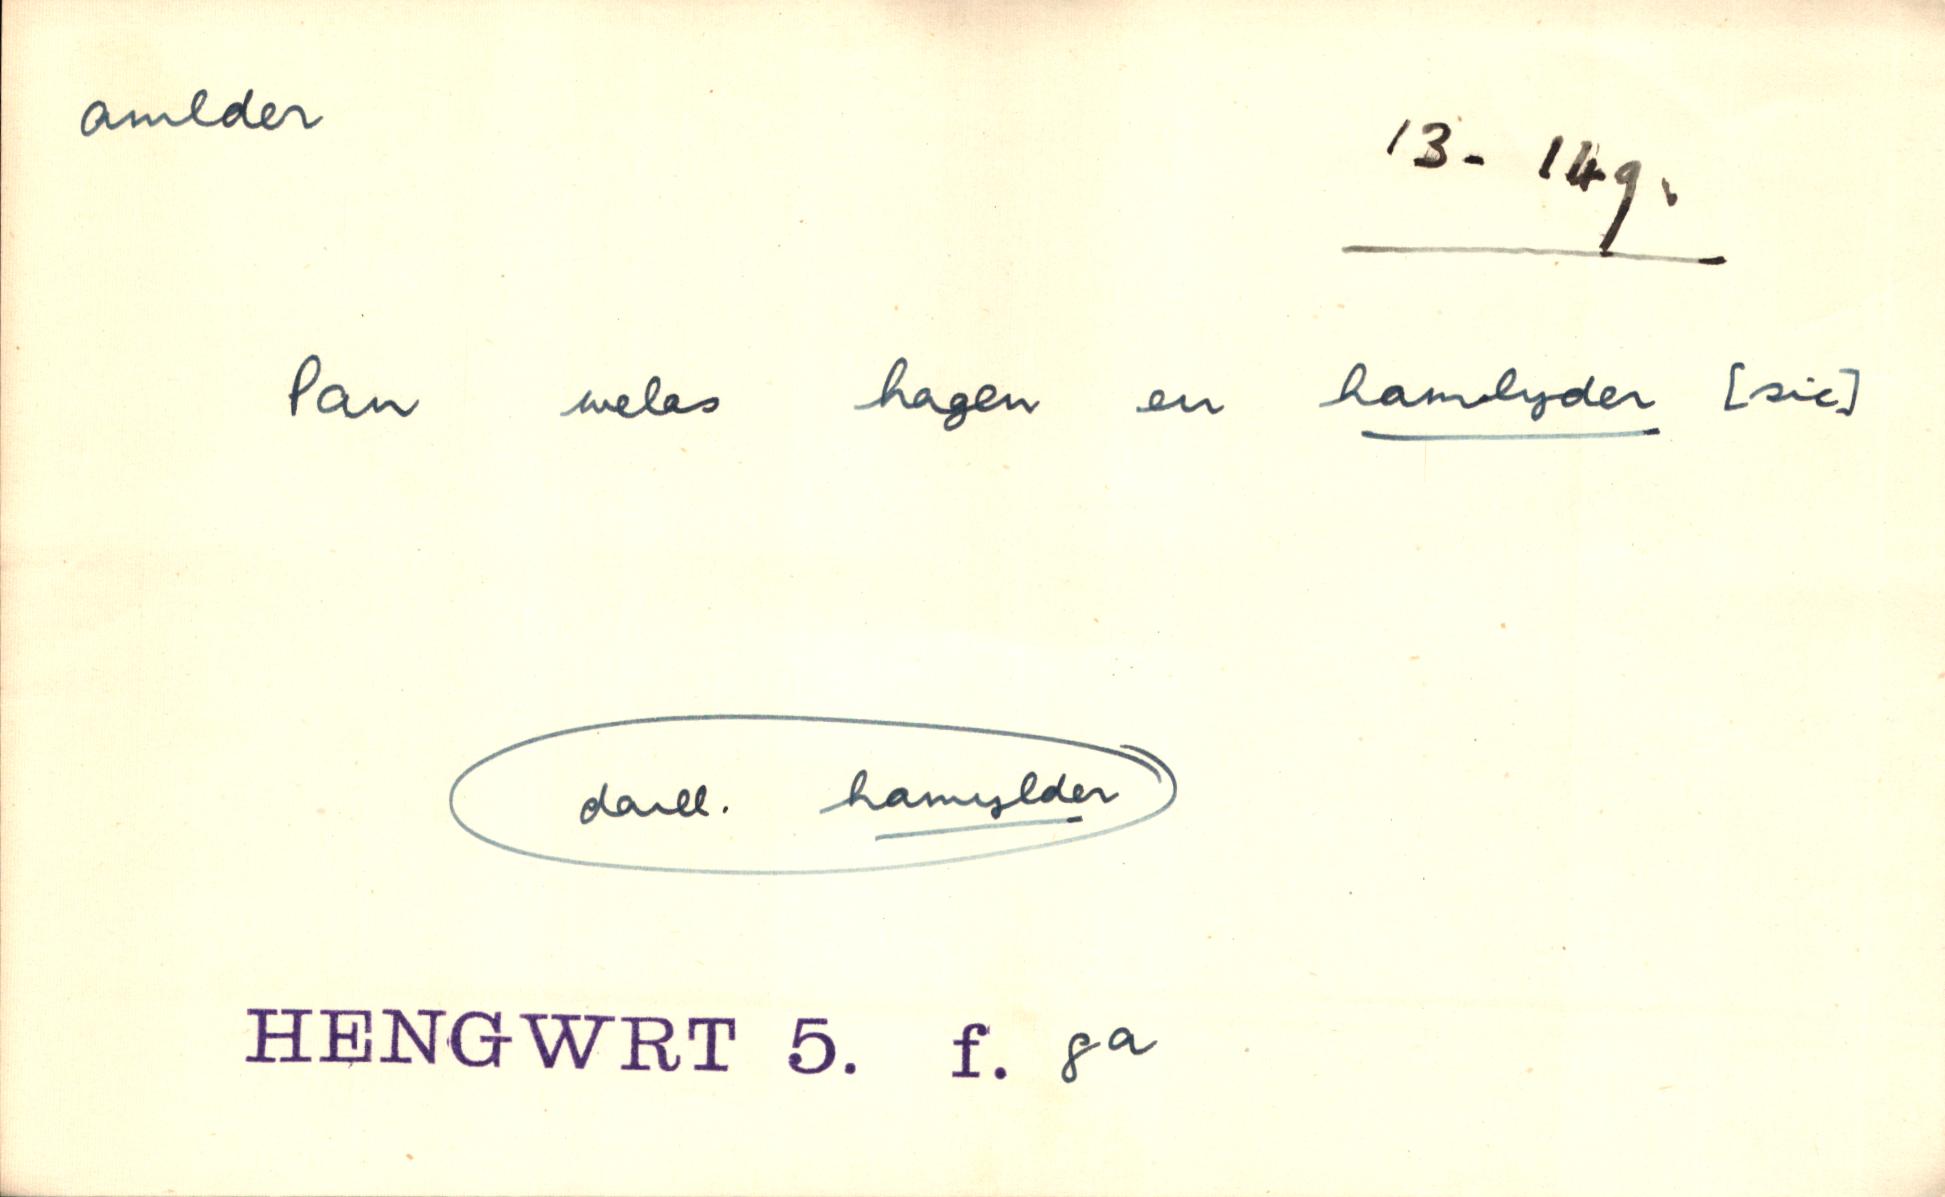 amlder
13-14g.
Pan welas hagen en hamlyder [sic]
darll. hamylder
HENGWRT 5. f. 8a